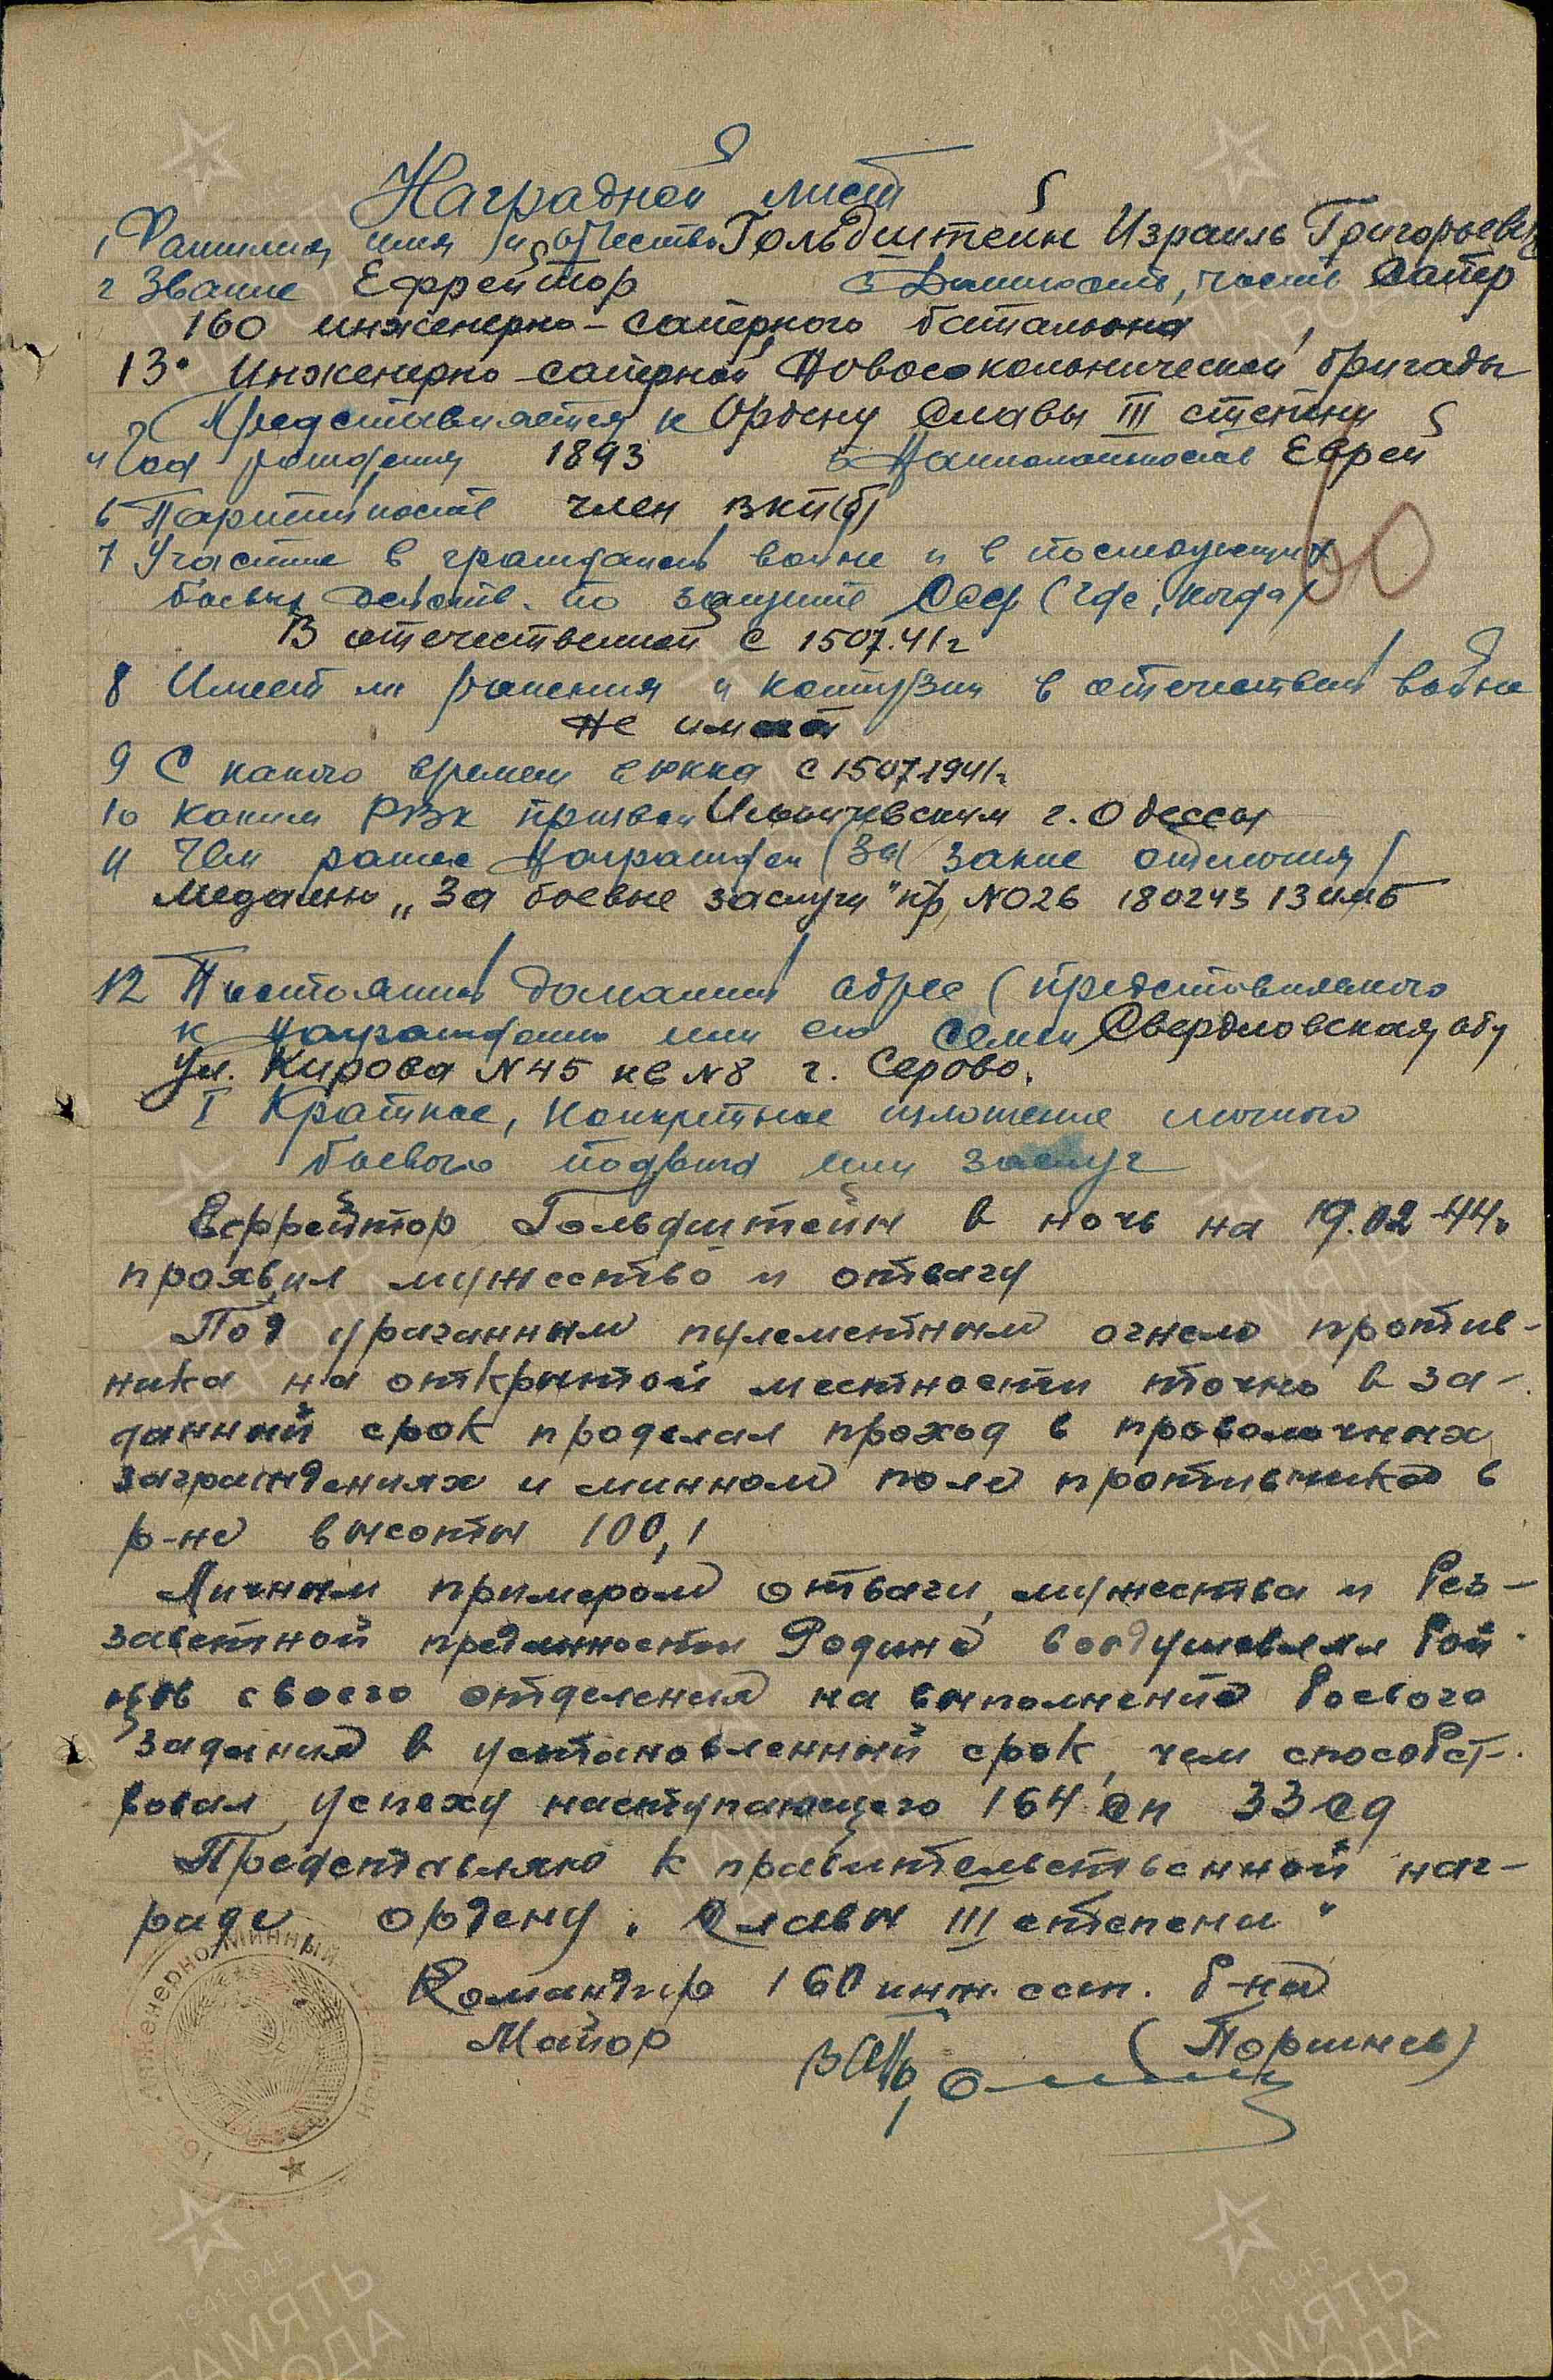 Наградной лист
1 Фамилия, имя и отчество Гольдштейн Израиль Григорьевич
2 Звание Ефрейтор 3 Должность, часть Сапер
160 инженерно-саперного батальона
13ой Инженерно-саперной Новосокольнической бригады
Представляется к Ордену Славы III степени
4 Год рождения 1893 5 Национальность Еврей
6 Партийность член ВКП(б)
7 Участие в гражданской войне и в последующих
боевых действ. по защите СССР (где, когда)
В отечественной с 15.07.41г
8 Имеет ли ранения и контузии в отечествен войне
Не имеет
9 С какого времени в РККА с 15.07.1941г.
10 Каким РВК призван Ильичевским г. Одессы
11 Чем ранее награжден (За какие отличия)
Медалью „За боевые заслуги" пр. №026 180243 13 имб
12 Постоянный домашний адрес (представляемого
к награждению или его семьи Свердловская обл
ул. Кирова N 45 кв N 8 г. Серово.
I Краткое, конкретное изложение личного
боевого подвига или заслуг
Ефрейтор Гольдштейн в ночь на 19.02.44г
проявил мужество и отвагу
Под ураганным пулеметным огнем против-
ника на открытой местности точно в за-
данный срок проделал проход в проволочных
заграждениях и минном поле противника в
р-не высоты 100,1
Личным примером отваги, мужества и без-
заветной преданности Родине воодушевлял бой-
цов своего отделения на выполнение боевого
задания в установленный срок, чем способст-
вовал успеху наступающего 164 сп 33 сд
Представляю к правительственной наг-
раде ордену „Славы III степени"
Командир 160 инж. сап. б-на
Майор (Поршнев)
инженерно-минный
60
1941-1945
ПАМЯТЬ
НАРОДА